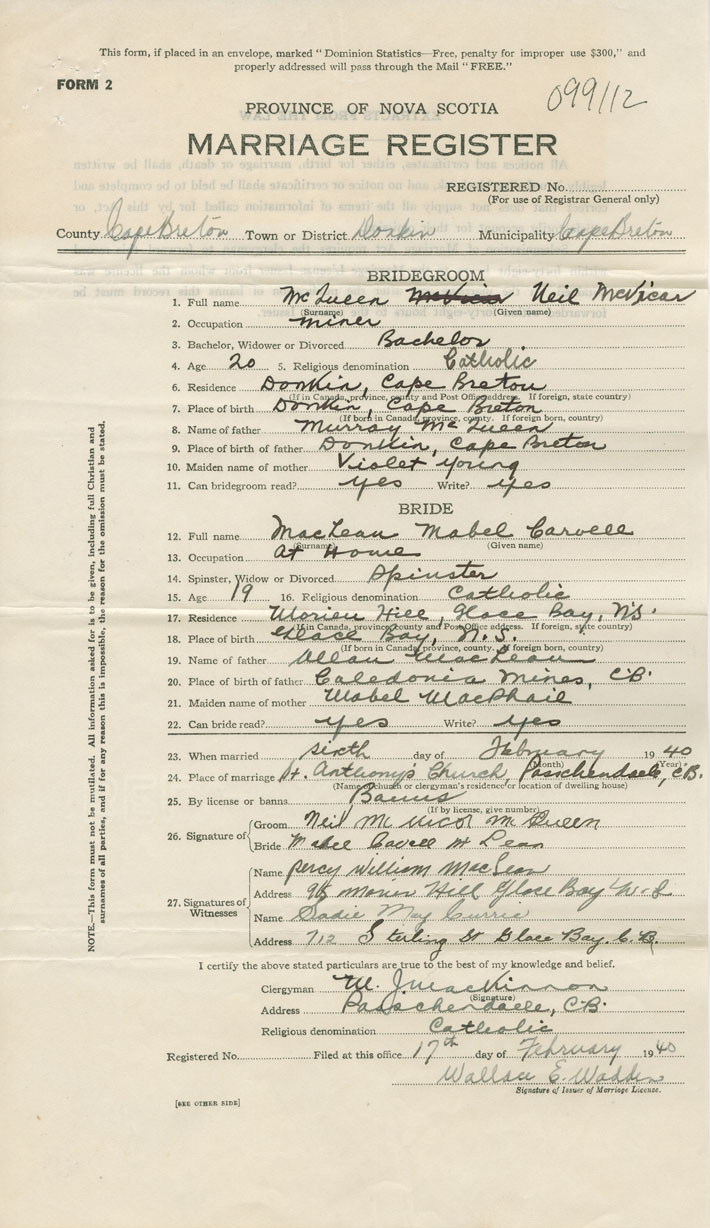 This form, if placed in an envelope, marked "Dominion Statistics—Free, penalty for improper use $300," and
properly addressed will pass through the Mail "FREE."
FORM 2
099112
PROVINCE OF NOVA SCOTIA
MARRIAGE REGISTER
REGISTERED No.
(For use of Registrar General only)
County Cape Breton Town or District Donkin Municipality Cape Breton
BRIDEGROOM
1. Full name McQueen McVicar Neil McVicar
(Surname) (Given name)
2. Occupation miner
3. Bachelor, Widower or Divorced Bachelor
4. Age 20 5. Religious denomination Catholic
6. Residence Donkin, Cape Breton
(If in Canada, province, county and Post Office address. If foreign, state country)
7. Place of birth Donkin, Cape Breton
(If born in Canada, province, county. If foreign born, country)
8. Name of father Murray McQueen
9. Place of birth of father Donkin, Cape Breton
10. Maiden name of mother Violet Young
11. Can bridegroom read? yes Write? yes
BRIDE
12. Full name MacLean Mabel Carvell
(Surname) (Given name)
13. Occupation at Home
14. Spinster, Widow or Divorced Spinster
15. Age 19 16. Religious denomination Catholic
17. Residence Morien Hill, Glace Bay, N.S.
(If in Canada, province, county and Post Office address. If foreign, state country)
18. Place of birth Glace Bay, N.S.
(If born in Canada, province, county. If foreign born, country)
19. Name of father Allan MacLean
20. Place of birth of father Caledonia Mines, C.B.
21. Maiden name of mother Mabel MacPhail
22. Can bride read? yes Write? yes
23. When married sixth day of February 1940
(Month) (Year)
24. Place of marriage St. Anthony's Church, Passchendaele, C.B.
(Name church or clergyman's residence or location of dwelling house)
25. By license or banns Banns
(If by license, give number)
26. Signature of
Groom Neil Mc Queen
Bride Mabel Cavell Mc Lean
27. Signatures of Witnesses
Name Percy William MacLean
Address Morien Hill Glace Bay N.S
Name Sadie May Currie
Address 712 Sterling St Glace Bay. C.B.
I certify the above stated particulars are true to the best of my knowledge and belief.
Clergyman M. J. MacKinnon
(Signature)
Address Passchendaele, C.B.
Religious denomination Catholic
Registered No. Filed at this office 17th day of February 1940
Wallace E. Wadden
Signature of Issuer of Marriage License.
[SEE OTHER SIDE]
NOTE.—This form must not be mutilated. All information asked for is to be given, including full Christian and
surnames of all parties, and if for any reason this is impossible, the reason for the omission must be stated.